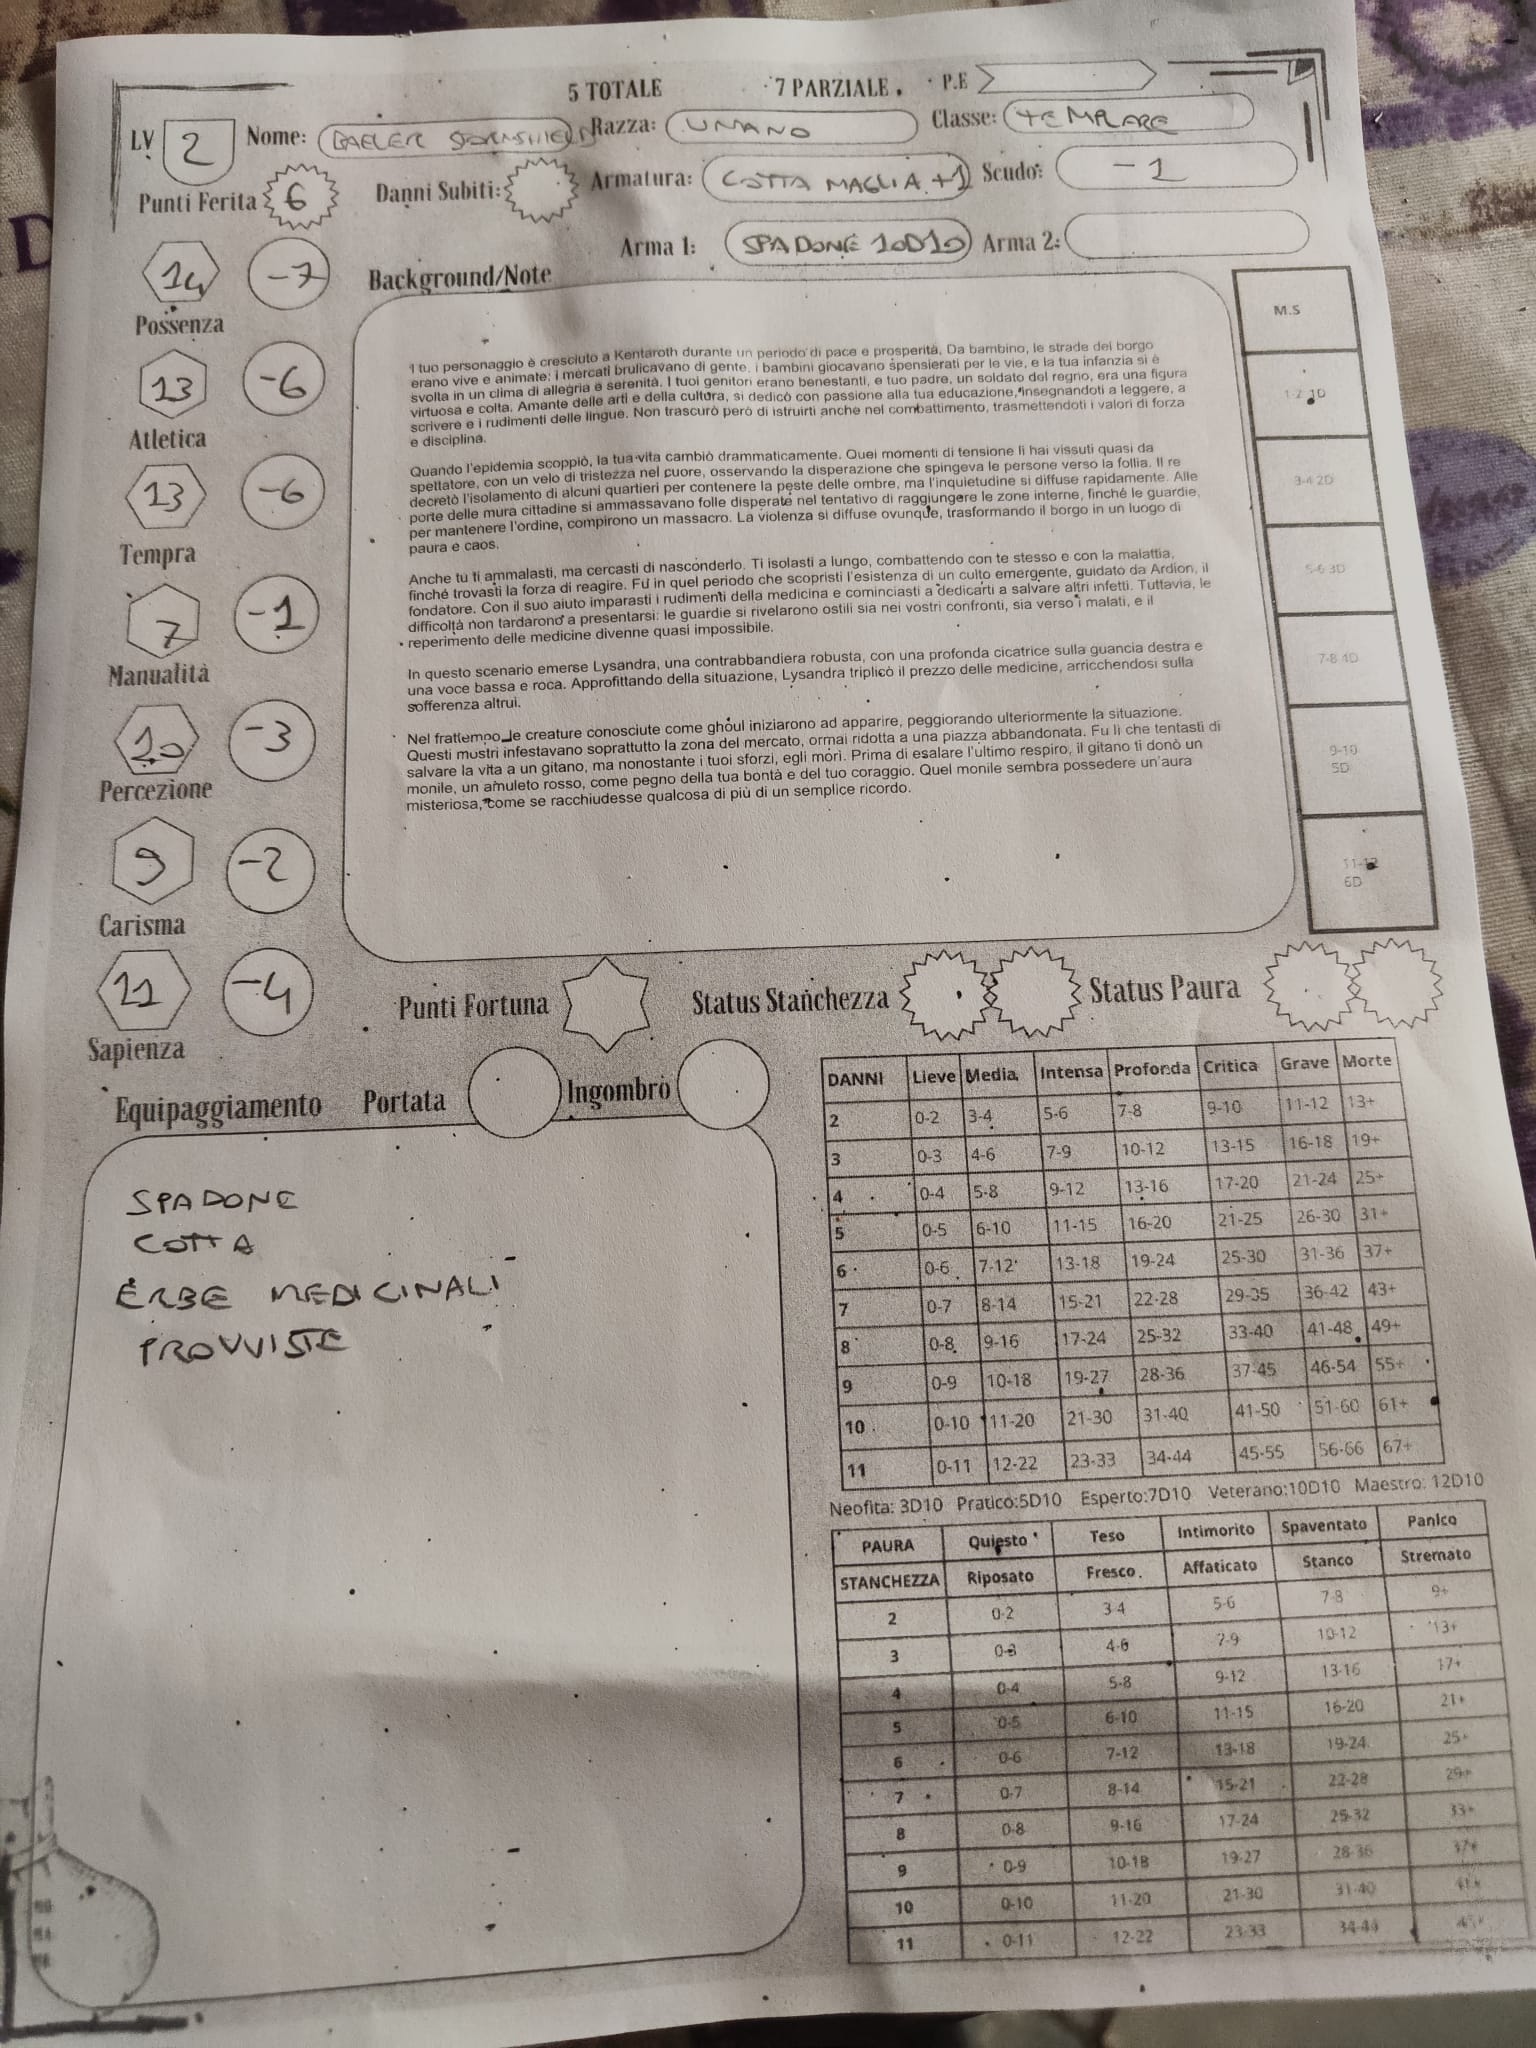 5 TOTALE 7 PARZIALE. P.E
LV 2 Nome: BAELER STORMSHIELD Razza: UMANO Classe: TEMPLARE
Punti Ferita 6 Danni Subiti: Armatura: COTTA MAGLIA +1 Scudo: -1
Arma 1: SPADONE 10D10 Arma 2:
14 -7
Possenza
13 -6
Atletica
13 -6
Tempra
7 -1
Manualità
10 -3
Percezione
9 -2
Carisma
11 -4
Sapienza
Background/Note
l tuo personaggio è cresciuto a Kentaroth durante un periodo di pace e prosperità. Da bambino, le strade del borgo
erano vive e animate: i mercati brulicavano di gente, i bambini giocavano spensierati per le vie, e la tua infanzia si è
svolta in un clima di allegria e serenità. I tuoi genitori erano benestanti, e tuo padre, un soldato del regno, era una figura
virtuosa e colta. Amante delle arti e della cultura, si dedicò con passione alla tua educazione, insegnandoti a leggere, a
scrivere e i rudimenti delle lingue. Non trascurò però di istruirti anche nel combattimento, trasmettendoti i valori di forza
e disciplina.
Quando l'epidemia scoppiò, la tua vita cambiò drammaticamente. Quei momenti di tensione li hai vissuti quasi da
spettatore, con un velo di tristezza nel cuore, osservando la disperazione che spingeva le persone verso la follia. Il re
decretò l'isolamento di alcuni quartieri per contenere la peste delle ombre, ma l'inquietudine si diffuse rapidamente. Alle
porte delle mura cittadine si ammassavano folle disperate nel tentativo di raggiungere le zone interne, finché le guardie,
per mantenere l'ordine, compirono un massacro. La violenza si diffuse ovunque, trasformando il borgo in un luogo di
paura e caos.
Anche tu ti ammalasti, ma cercasti di nasconderlo. Ti isolasti a lungo, combattendo con te stesso e con la malattia,
finché trovasti la forza di reagire. Fu in quel periodo che scopristi l'esistenza di un culto emergente, guidato da Ardion, il
fondatore. Con il suo aiuto imparasti i rudimenti della medicina e cominciasti a dedicarti a salvare altri infetti. Tuttavia, le
difficoltà non tardarono a presentarsi: le guardie si rivelarono ostili sia nei vostri confronti, sia verso i malati, e il
reperimento delle medicine divenne quasi impossibile.
In questo scenario emerse Lysandra, una contrabbandiera robusta, con una profonda cicatrice sulla guancia destra e
una voce bassa e roca. Approfittando della situazione, Lysandra triplicò il prezzo delle medicine, arricchendosi sulla
sofferenza altrui.
Nel frattempo, le creature conosciute come ghoul iniziarono ad apparire, peggiorando ulteriormente la situazione.
Questi mostri infestavano soprattutto la zona del mercato, ormai ridotta a una piazza abbandonata. Fu lì che tentasti di
salvare la vita a un gitano, ma nonostante i tuoi sforzi, egli morì. Prima di esalare l'ultimo respiro, il gitano ti donò un
monile, un amuleto rosso, come pegno della tua bontà e del tuo coraggio. Quel monile sembra possedere un'aura
misteriosa, come se racchiudesse qualcosa di più di un semplice ricordo.
M.S
1-2 1D
3-4 2D
5-6 3D
7-8 4D
9-10
5D
11-12
6D
Punti Fortuna Status Stanchezza Status Paura
Equipaggiamento Portata Ingombro
SPADONE
COTTA
ERBE MEDICINALI
PROVVISTE
DANNI Lieve Media Intensa Profonda Critica Grave Morte
2 0-2 3-4 5-6 7-8 9-10 11-12 13+
3 0-3 4-6 7-9 10-12 13-15 16-18 19+
4 0-4 5-8 9-12 13-16 17-20 21-24 25+
5 0-5 6-10 11-15 16-20 21-25 26-30 31+
6 0-6 7-12 13-18 19-24 25-30 31-36 37+
7 0-7 8-14 15-21 22-28 29-35 36-42 43+
8 0-8 9-16 17-24 25-32 33-40 41-48 49+
9 0-9 10-18 19-27 28-36 37-45 46-54 55+
10 0-10 11-20 21-30 31-40 41-50 51-60 61+
11 0-11 12-22 23-33 34-44 45-55 56-66 67+
Neofita: 3D10 Pratico:5D10 Esperto:7D10 Veterano:10D10 Maestro: 12D10
PAURA Quiesto Teso Intimorito Spaventato Panico
STANCHEZZA Riposato Fresco Affaticato Stanco Stremato
2 0-2 3-4 5-6 7-8 9+
3 0-3 4-6 7-9 10-12 13+
4 0-4 5-8 9-12 13-16 17+
5 0-5 6-10 11-15 16-20 21+
6 0-6 7-12 13-18 19-24 25+
7 0-7 8-14 15-21 22-28 29+
8 0-8 9-16 17-24 25-32 33+
9 0-9 10-18 19-27 28-36 37+
10 0-10 11-20 21-30 31-40 41+
11 0-11 12-22 23-33 34-44